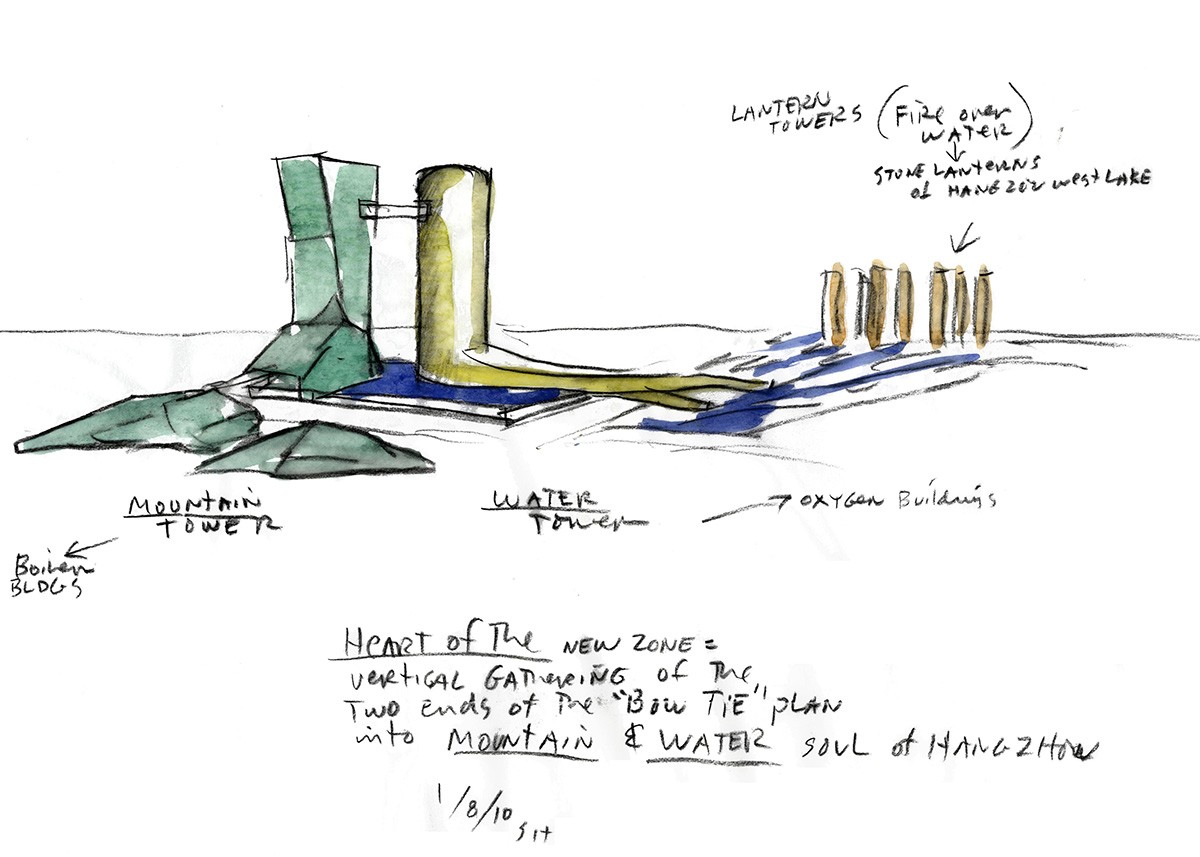 LANTERN
TOWERS
(FIRE over
WATER)
STONE LANTERNS
of HANGZOU West LAKE
MOUNTAIN
TOWER
WATER
TOWER
OXYGEN Buildings
Boiler
BLDGS
HEART of The NEW ZONE =
VERTICAL GATHERING of The
TWO ends of The "BOW TIE" PLAN
into MOUNTAIN & WATER SOUL of HANGZHOU
1/8/10